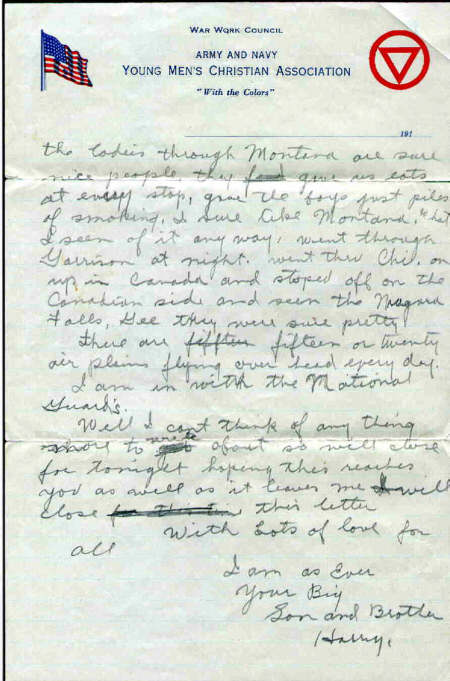 WAR WORK COUNCIL
ARMY AND NAVY
YOUNG MEN'S CHRISTIAN ASSOCIATION
"With the Colors"
191
the ladies through Montana are sure
nice people, they give us eats
at every stop, gave the boys just piles
of smoking, I sure like Montana, what
I seen of it any way, went through
Garrison at night. went thru Chi, on
up in Canada and stoped off on the
Canadian side and seen the Niagara
Falls, Gee they were sure pretty
There are fiffteen fifteen or twenty
air plains flying over head every day.
I am in with the National
Guards.
Well I cant think of any thing
more to write about so will close
for tonight hoping this reaches
you as well as it leaves me I will
close this letter
With Lots of love for
all
I am as Ever
Your Big
Son and Brother
Harry.